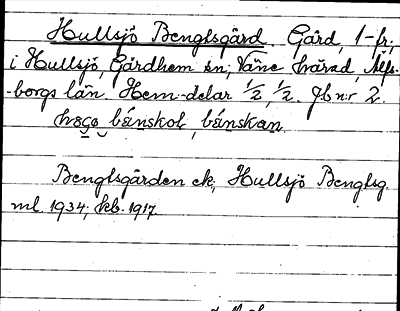 Hullsjö Bengtsgård. Gård, 1-fr;
i Hullsjö, Gärdhem sn; Väne härad, Älfs-
-borgs län. Hem-delar 1/2, 1/2. Jb nr 2.
bänskot, bänskan
Bengtsgården ek, Hullsjö Bengtsg.
ml. 1934; kb. 1917.